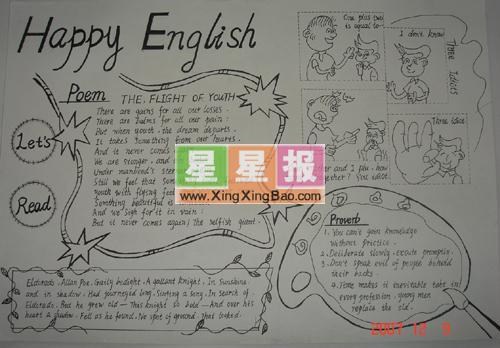 Happy English
Let's
Read
Poem
THE FLIGHT OF YOUTH
There are gains for all our losses.
There are balms for all our pain:
But when youth, the dream departs
It takes something from our hearts
And it never comes
We are stronger, and
Under manhood's ster
Still we feel that Som
Youth with flying fee
Something beautiful
And we sigh for it in vain:
But it never comes again! The selfish giant.
星星报
www.XingXingBao.com
One plus two
is equal to
I don't know
THREE IDIOTS
Three idiot
Eldorado. Allan Poe. Gaily bedight, A gallant knight, In Sunshine
and in shadow. Had journeyed long, Singing a song, In search of
Eldorado. But he grew old — This knight so bold — And over his
heart a shadow. Fell as he found, No spot of ground, That looked.
Proverb
1. You can't gain knowledge
without practice.
2. Deliberate slowly, execute promptly.
3. Don't speak evil of people behind
their backs.
4. Time makes it inevitable that in
every profession, young men
replace the old.
2007 12 9